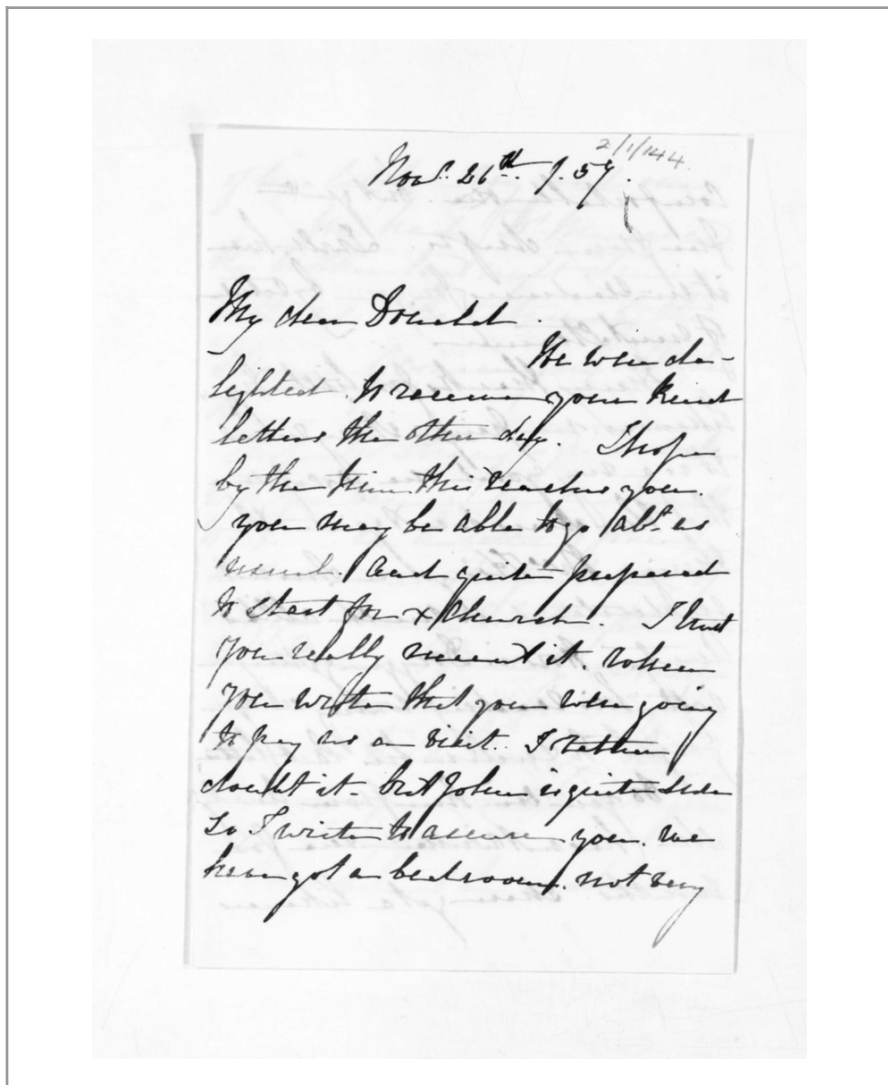 2/1/144.
Novr. 26th. /57.
My dear Donald.
We were de-
lighted to receive your kind
letters the other day. I hope
by the time this reaches you
you may be able to go abt. as
usual. and quite prepared
to start for x church. I trust
you really meant it. when
you wrote that you were going
to pay us a visit. I rather
doubt it - but John is quite sure
so I write to assure you. we
have got a bedroom. not very